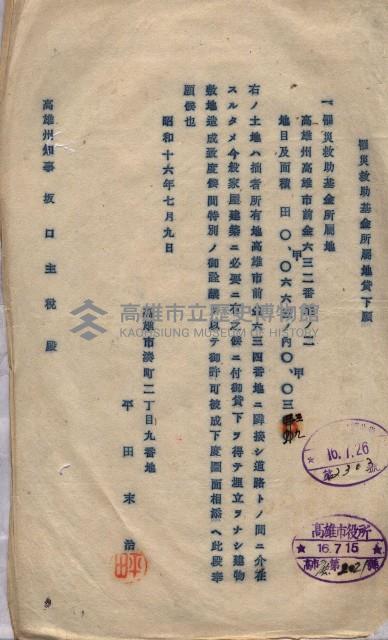 罹災救助基金所屬地貸下願
一、罹災救助基金所屬地
高雄州高雄市前金六三二番ノ二
地目及面積 田 〇、〇六六一甲ノ內〇、〇三 甲
右ノ土地ハ拙者所有地高雄市前金六三四番地ニ隣接シ道路トノ間ニ介在
スルタメ今般家屋建築ニ必要ニ有之候ニ付御貸下ヲ得テ埋立ヲナシ建物
敷地造成致度候間特別ノ御詮議ヲ以テ御許可被成下度圖面相添ヘ此段奉
願候也
昭和十六年七月九日
高雄市湊町二丁目九番地
平田末治
高雄州知事 坂口主税殿
16.7.26
高雄市役所
16.7.15
高雄市立歷史博物館
KAOHSIUNG MUSEUM OF HISTORY